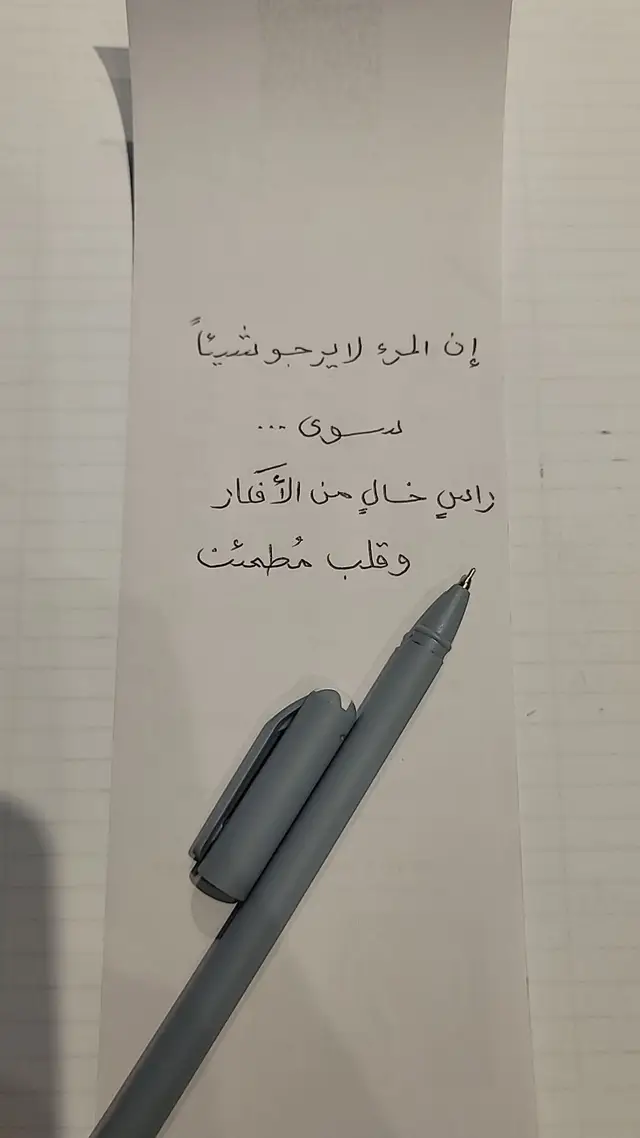 إن المرء لا يرجو شيئاً
سوى ...
راسٍ خالٍ من الأفكار
وقلب مُطمئن